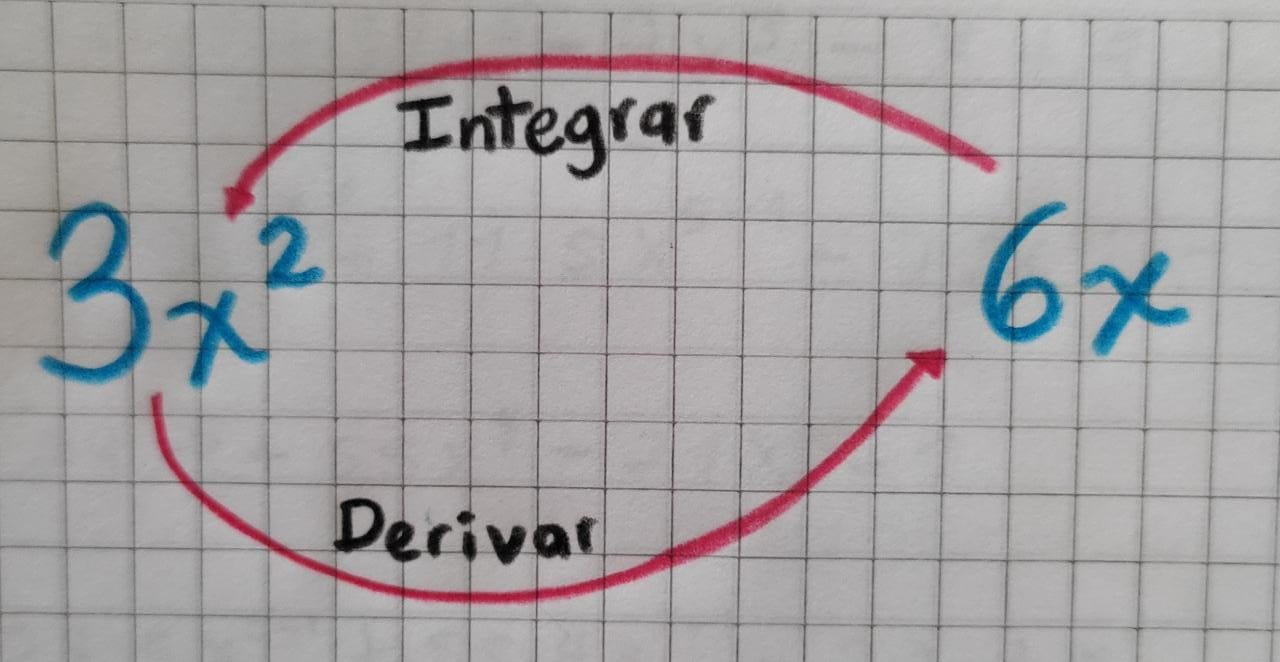 Integrar
3x² 6x
Derivar